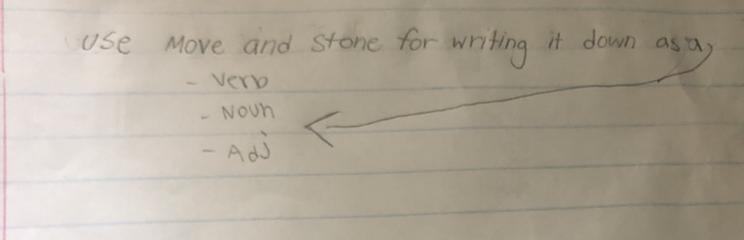 Use Move and Stone for writing it down as a,
- Verb
- Noun
- Adj